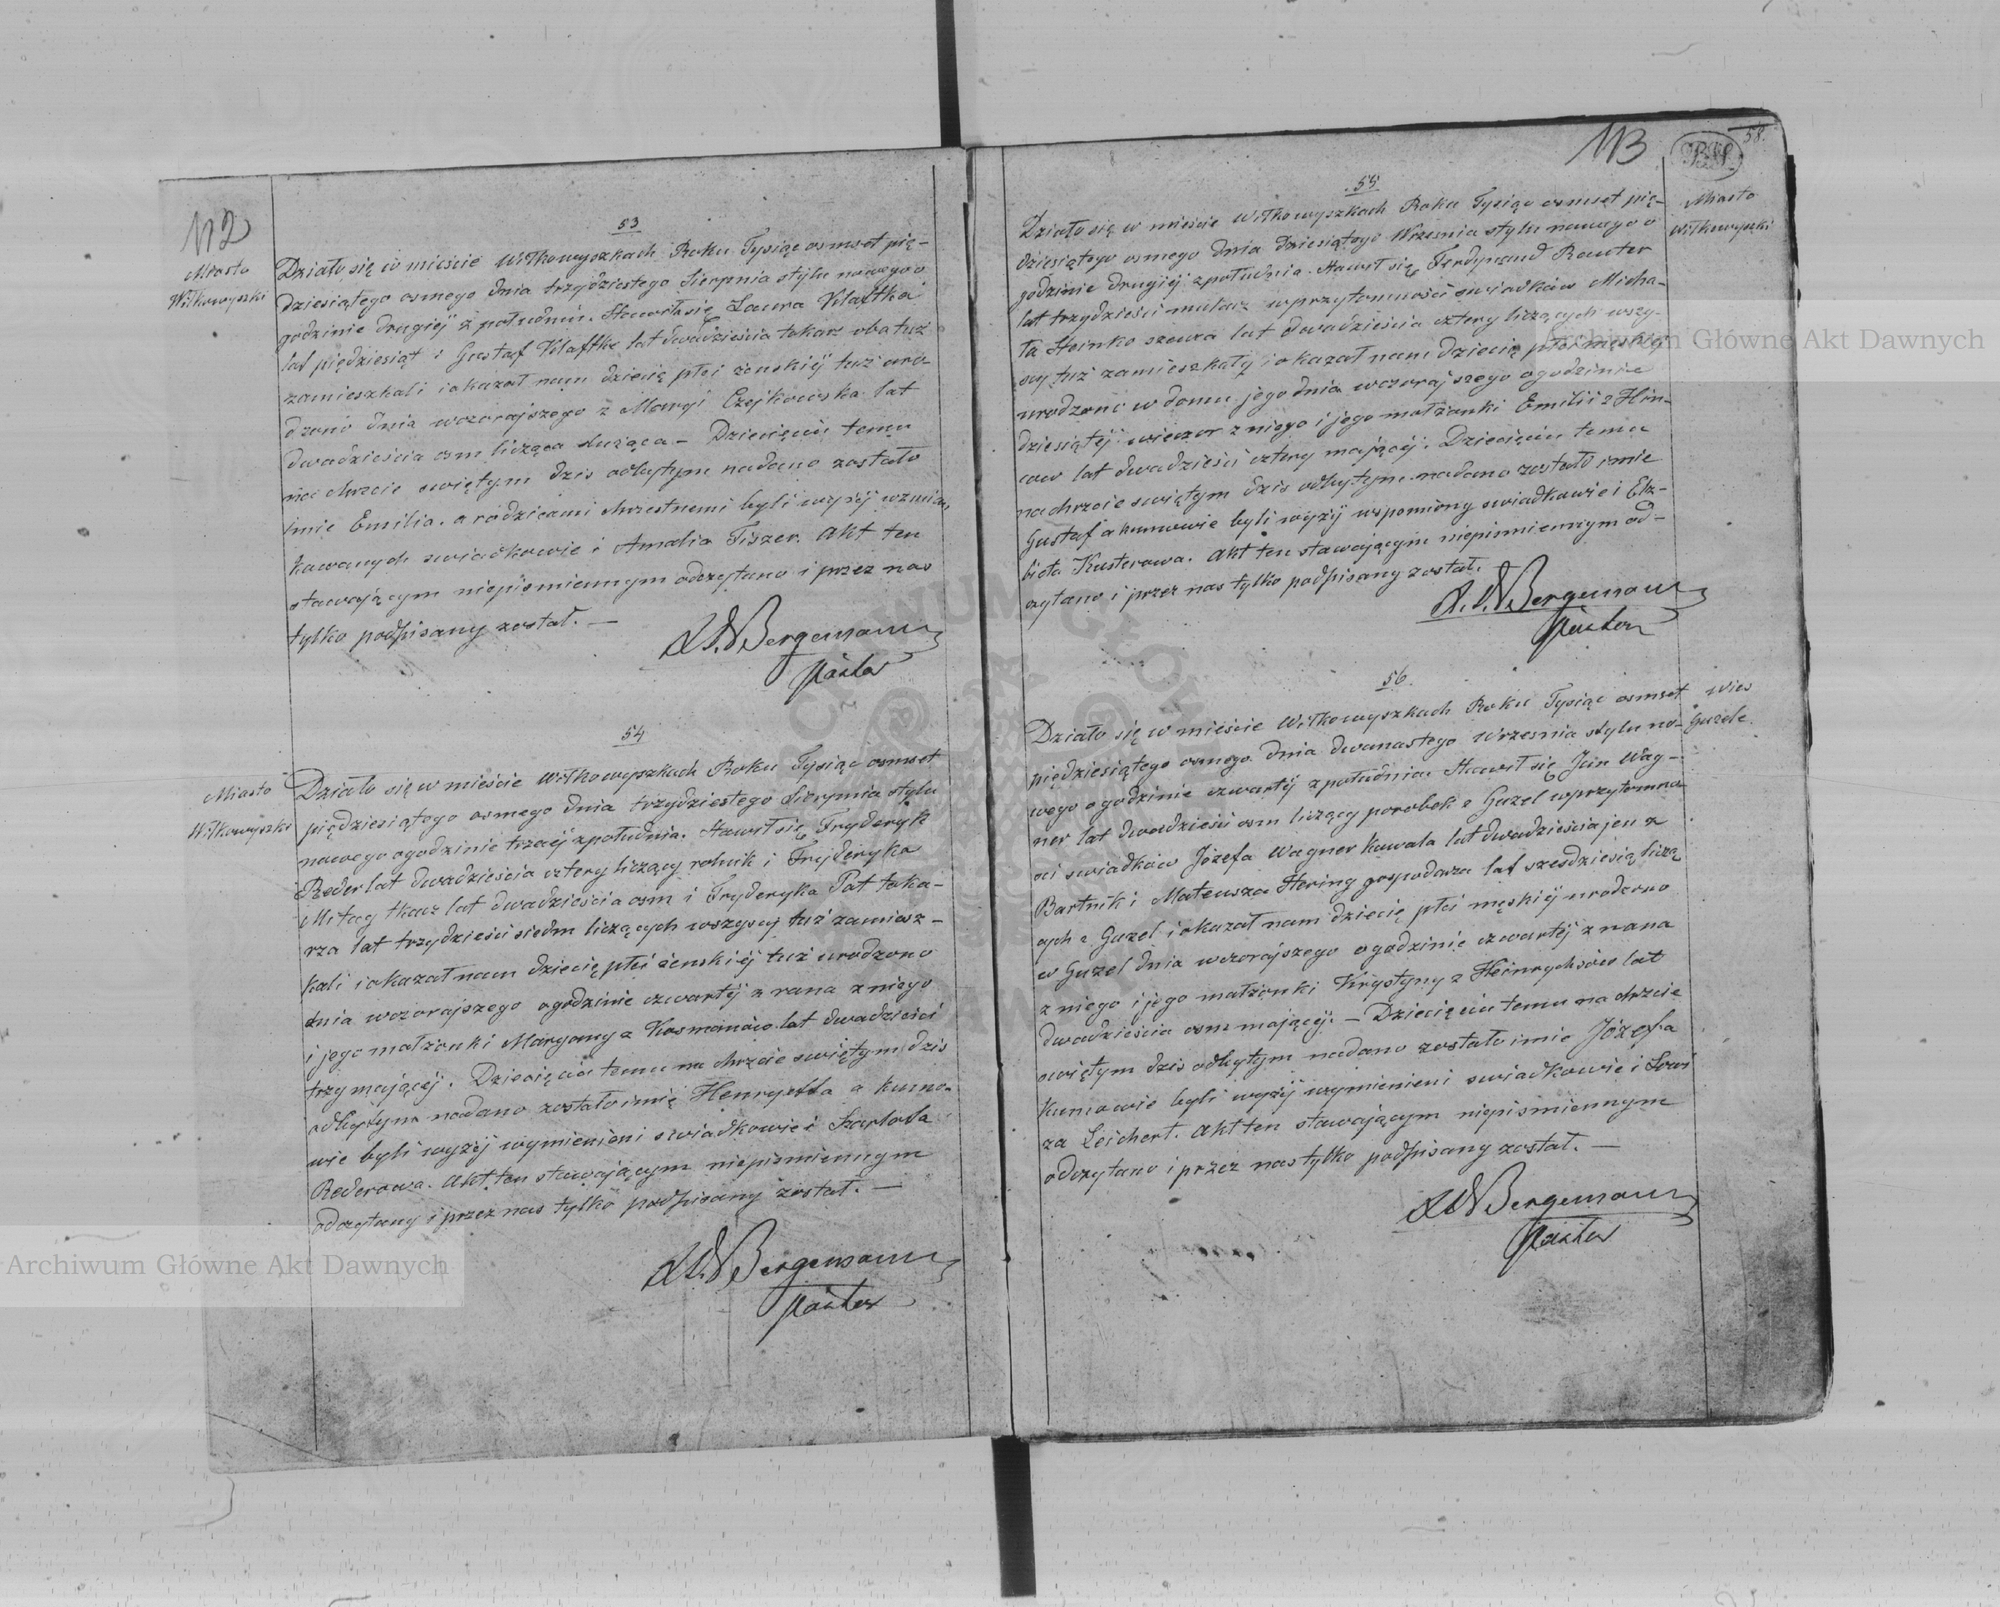 112
Miasto
Wiłkowyszki
53
Działo się w mieście Wiłkowyszkach Roku Tysiąc osmset pię-
dziesiątego osmego dnia trzydziestego Sierpnia stylu nowego o
godzinie drugiej z południa. Stawiła się Laura Klaftke
lat pięдziesiąt i Gustaf Klaftke lat dwadzieścia tokarz oba tuż
zamieszkali i okazał nam dziecię płci żenskiéj tuż uro-
dzono dnia wczorajszego z Maryi Czejkowska lat
dwadzieścia osm licząca służąca – Dziecięciu temu
na chrzcie świętym dzis odbytym nadano zostało
imie Emilia. a rodzicami chrzestnemi byli wyżéj wzmian,
kowanych swiadkowie i Amalia Fiszer. Akt ten
stawającym niepismiennym odczytano i przez nas
tylko podpisany został. —
Bergemann
Pastor
Miasto
Wiłkowyszki
54
Działo się w mieście Wiłkowyszkach Roku Tysiąc osmset
pięдziesiątego osmego dnia trzydziestego Sierpnia stylu
nowego o godzinie trzeciéj z południa. Stawił się Fryderyk
Reder lat dwadzieścia cztery liczący rolnik i Fryderyka
Mitag tkacz lat dwadzieścia osm i Fryderyka Pat toka-
rza lat trzydzieści siedm liczących wszyscy tuż zamiesz-
kali i okazał nam dziecię płci żenskiéj tuż urodzono
dnia wczorajszego o godzinie czwartéj z rana z niego
i jego małżonki Maryanny z Kosmanów lat dwadzieści
trzy mającéj. Dziecięciu temu na chrzcie swiętym dzis
odbytym nadano zostało imię Henryetta a kumo-
wie byli wyżéj wymienieni swiadkowie i Szarlota
Rederowa. Akt ten stawającym niepismiennym
odczytany i przez nas tylko podpisany został. —
Bergemann
Pastor
113
58.
55
Miasto
Wiłkowyszki
Działo się w mieście Wiłkowyszkach Roku Tysiąc osmset pię-
dziesiątego osmego dnia dziesiątego Wrzesnia stylu nowego o
godzinie drugiéj z południa. Stawił się Ferdynand Rauter
lat trzydzieści mularz w przytomności swiadków Micha-
ła Heinke szewca lat dwadzieścia cztery liczących wszy-
scy tuż zamieszkały i okazał nam dziecię płci męskiéj
urodzone w domu jego dnia wczorajszego o godzinie
dziesiątéj wieczor z niego i jego małżonki Emilii z Hin-
ców lat dwadzieści cztery mającéj. Dziecięciu temu
na chrzcie swiętym dzis odbytym nadano zostało imie
Gustaf a kumowie byli wyżéj wspomiony swiadkowie i Elz-
bieta Kusterowa. Akt ten stawającym niepismiennym od-
czytano i przez nas tylko podpisany został.
Bergemann
Pastor
56.
Wies
Guzele.
Działo się w mieście Wiłkowyszkach Roku Tysiąc osmset
pięдziesiątego osmego dnia dwunastego Wrzesnia stylu no-
wego o godzinie czwartéj z południa Stawił się Jan Wag-
ner lat dwadzieści osm liczący porobek z Guzel w przytomno
sci swiadków Józefa Wagner kowala lat dwadzieścia jen z
Bartnik i Mateusza Hering gospodarza lat szesdziesiąt liczą
cych z Guzel i okazał nam dziecię płci męskiéj urodzono
w Guzel dnia wczorajszego o godzinie czwartéj z rana
z niego i jego małżonki Krystyny z Heinrychsów lat
dwadzieścia osm mającéj. – Dziecięciu temu na chrzcie
swiętym dzis odbytym nadano zostało imie Józef a
kumowie byli wyżéj wymienieni swiadkowie i Lowi
za Leichert. Akt ten stawającym niepismiennym
odczytano i przez nas tylko podpisany został. —
Bergemann
Pastor
Archiwum Główne Akt Dawnych
Archiwum Główne Akt Dawnych